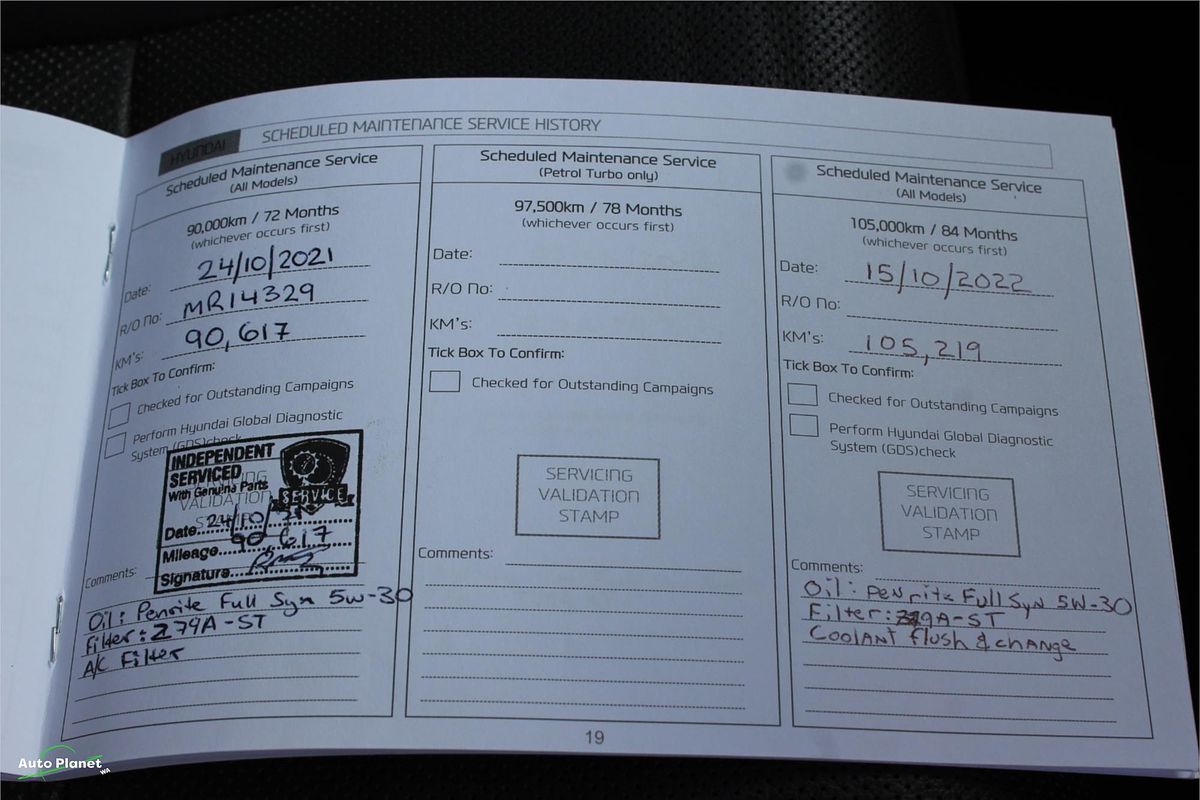 HYUNDAI
SCHEDULED MAINTENANCE SERVICE HISTORY
Scheduled Maintenance Service
(All Models)
90,000km / 72 Months
(whichever occurs first)
Date: 24/10/2021
R/O No: MR14329
KM's: 90,617
Tick Box To Confirm:
Checked for Outstanding Campaigns
Perform Hyundai Global Diagnostic
System (GDS)check
INDEPENDENT
SERVICED
With Genuine Parts
SERVICE
SERVICING
VALIDATION
STAMP
Date 24/10/21
Mileage 90,617
Signature
Comments:
Oil: Penrite Full Syn 5W-30
Filter: Z79A-ST
A/C Filter
Scheduled Maintenance Service
(Petrol Turbo only)
97,500km / 78 Months
(whichever occurs first)
Date:
R/O No:
KM's:
Tick Box To Confirm:
Checked for Outstanding Campaigns
SERVICING
VALIDATION
STAMP
Comments:
Scheduled Maintenance Service
(All Models)
105,000km / 84 Months
(whichever occurs first)
Date: 15/10/2022
R/O No:
KM's: 105,219
Tick Box To Confirm:
Checked for Outstanding Campaigns
Perform Hyundai Global Diagnostic
System (GDS)check
SERVICING
VALIDATION
STAMP
Comments:
Oil: Penrite Full Syn 5W-30
Filter: Z79A-ST
Coolant flush & change
19
Auto Planet
WA